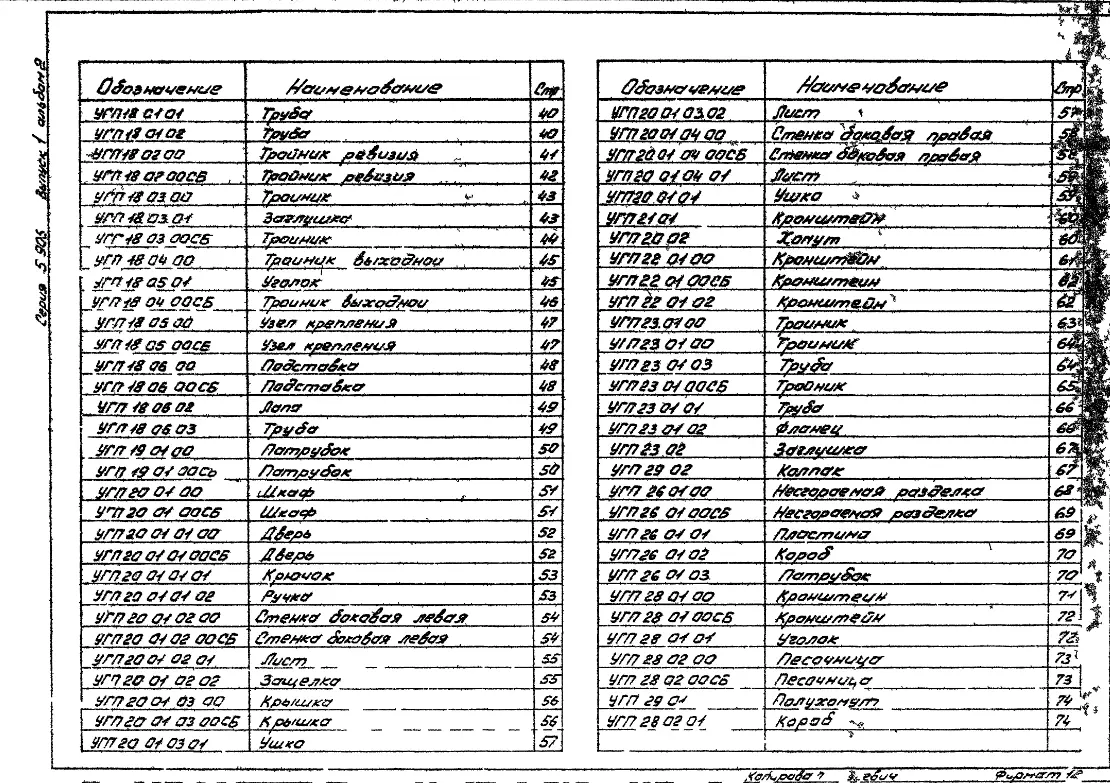 Серия 5 905 выпуск 1 альбом 2
Обозначение Наименование Стр
УГП18 01 01 Труба 40
УГП18 01 02 Труба 40
УГП18 02 00 Тройник ревизия 41
УГП 18 02 00СБ Тройник ревизия 42
УГП 18 03 00 Тройник 43
УГП 18 03 01 Заглушка 43
УГП 18 03 00СБ Тройник 44
УГП 18 04 00 Тройник выходной 45
УГП 18 05 01 Уголок 45
УГП 18 04 00СБ Тройник выходной 46
УГП 18 05 00 Узел крепления 47
УГП 18 05 00СБ Узел крепления 47
УГП 18 06 00 Подставка 48
УГП 18 06 00СБ Подставка 48
УГП 18 06 02 Лапа 49
УГП 18 06 03 Труба 49
УГП 19 01 00 Патрубок 50
УГП 19 01 00СБ Патрубок 50
УГП 20 01 00 Шкаф 51
УГП 20 01 00СБ Шкаф 51
УГП 20 01 01 00 Дверь 52
УГП 20 01 01 00СБ Дверь 52
УГП 20 01 01 01 Крючок 53
УГП 20 01 01 02 Ручка 53
УГП 20 01 02 00 Стенка боковая левая 54
УГП 20 01 02 00СБ Стенка боковая левая 54
УГП 20 01 02 01 Лист 55
УГП 20 01 02 02 Защелка 55
УГП 20 01 03 00 Крышка 56
УГП 20 01 03 00СБ Крышка 56
УГП 20 01 03 01 Ушко 57
Обозначение Наименование Стр
УГП 20 01 03.02 Лист 57
УГП 20 01 04 00 Стенка боковая правая 58
УГП 20.01 04 00СБ Стенка боковая правая 58
УГП 20 01 04 01 Лист 59
УГП20 01 01 Ушко 59
УГП 21 01 Кронштейн 60
УГП 20 02 Хомут 60
УГП 22 01 00 Кронштейн 61
УГП 22 01 00СБ Кронштейн 62
УГП 22 01 02 Кронштейн 62
УГП 23.01 00 Тройник 63
УГП 23 01 00 Тройник 64
УГП 23 01 03 Труба 64
УГП 23 01 00СБ Тройник 65
УГП 23 01 01 Труба 66
УГП 23 01 02 Фланец 66
УГП 23 02 Заглушка 67
УГП 29 02 Колпак 67
УГП 26 01 00 Несгораемая разделка 68
УГП 26 01 00СБ Несгораемая разделка 69
УГП 26 01 01 Пластина 69
УГП 26 01 02 Короб 70
УГП 26 01 03 Патрубок 70
УГП 28 01 00 Кронштейн 71
УГП 28 01 00СБ Кронштейн 72
УГП 28 01 01 Уголок 72
УГП 28 02 00 Песочница 73
УГП 28 02 00СБ Песочница 73
УГП 29 01 Полухомут 74
УГП 28 02 01 Короб 74
Копировал Формат 12